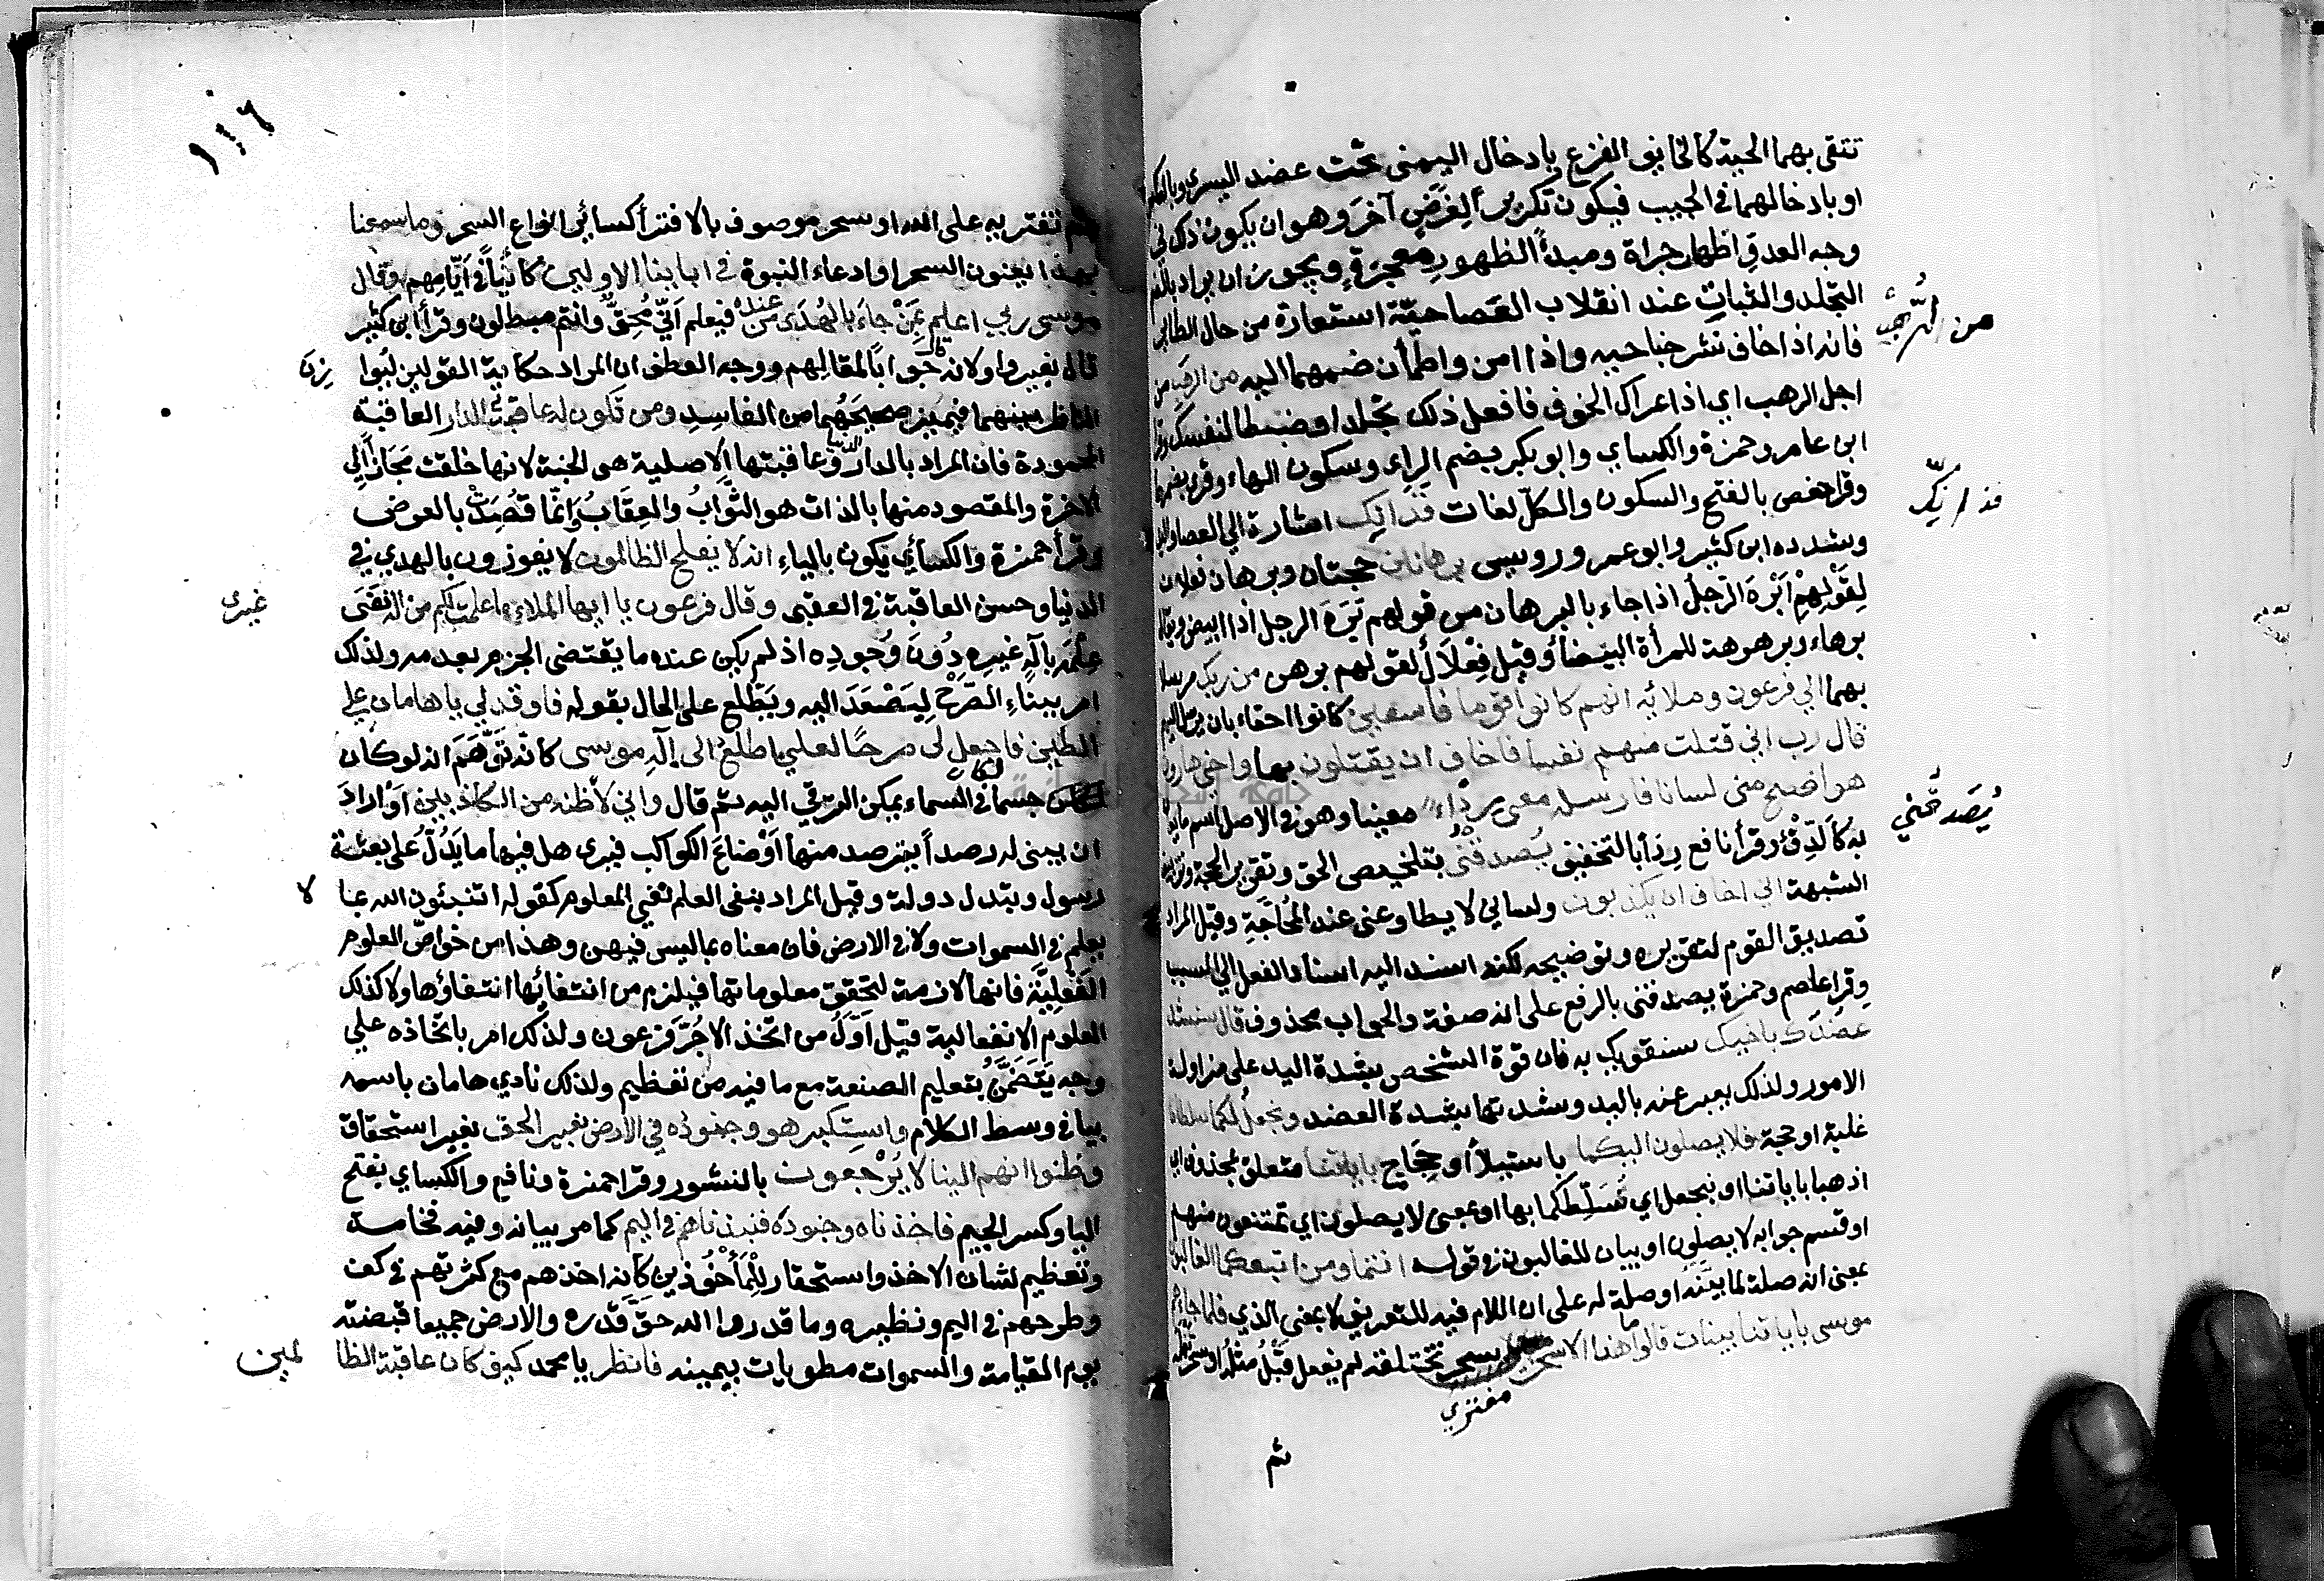 تتقى بهما الحية كالخايف الفزع بادخال اليمنى تحت عضد اليسرى وبالعكس
او بادخالهما في الجيب فيكون تكريرا لغرض آخر وهو ان يكون ذلك في
وجه العدو اظهار جراة ومبدأ لظهور معجزة ويجوز ان يراد بالضم
التجلد والثبات عند انقلاب العصا حية استعارة من حال الطاير
فانه اذا خاف نشر جناحيه واذا امن واطمأن ضمهما اليه من الرهب من
من الرُّهُب
اجل الرهب اي اذا عراك الخوف فافعل ذلك تجلدا وضبطا لنفسك وقرا
ابن عامر وحمزة والكساي وابو بكر بضم الراء وسكون الهاء وقرى بضمهما
وقرا حفص بالفتح والسكون والكل لغات فذانك اشارة الي العصا واليد
فذانّك
وشدده ابن كثير وابو عمرو ورويس برهانان حجتان وبرهان فعلان
لقولهم ابره الرجل اذا جاء بالبرهان من قولهم بَرَه الرجل اذا ابيض ويقال
برهاء وبرهرهة للمرأة البيضا وقيل فعلال لقولهم برهن من ربك مرسلا
بهما الي فرعون وملائه انهم كانوا قوما فاسقين كانوا احقاء بان يرسل اليهم
قال رب اني قتلت منهم نفسا فاخاف ان يقتلون بها واخي هارون
هو افصح منى لسانا فارسله معى ردًاء معينا وهو في الاصل اسم ما يعان
به كالدفء وقرأ نافع ردا بالتخفيف يُصدقنى بتلخيص الحق وتقرير الحجة وتزييف
يُصَدقُني
الشبهة اني اخاف ان يكذبون ولساني لا يطاوعنى عند المُحاجَّةِ وقيل المراد
تصديق القوم لتقريره وتوضيحه لكنه اسند اليه اسناد الفعل الي السبب
وقرا عاصم وحمزة يصدقنى بالرفع على انه صفة والجواب محذوف قال سنشد
عضدك باخيك سنقويك به فان قوة الشخص بشدة اليد على مزاولة
الامور ولذلك يعبر عنه باليد وشدتها بشدة العضد ونجعل لكما سلطانا
غلبة او حجة فلا يصلون اليكما باستيلأ او حجاج باياتنا متعلق بمحذوف اي
اذهبا باياتنا او نجعل اي نُسَلِّطكما بها او بمعنى لا يصلون اي تمتنعون منهم
او قسم جوابه لا يصلون او بيان للغالبون في قوله انتما ومن اتبعكما الغالبون
بمعنى انه صلة لما بينه او صلة له على ان اللام فيه للتعريف لا بمعنى الذي فلما جاءهم
موسى باياتنا بينات قالوا ما هذا الا سحر بسحر تختلقه لم يفعل قبل مثله او سحر تعلمه
مفترى
ثم
١١٦
ثم تفتريه على الله او سحر موصوف بالافترأ كسائر انواع السحر وما سمعنا
بهذا يعنون السحر او ادعاء النبوة في ابائنا الاولين كائنا في ايامهم وقال
موسى ربى اعلم بمن جاءَ بالهُدَى من عنده فيعلم أنّي مُحِقٌّ وانتم مبطلون وقرأ ابن كثير
قال بغير واو لانه قال جوابا لمقالهم ووجه العطف ان المراد حكاية القولين ليوا
زن
الناظر بينهما فيميز صحيحهما من الفاسد ومن تكون له عاقبة الدار العاقبة
المحمودة فان المراد بالدار الدنيا وعاقبتها الاصلية هى الجنة لانها خلقت مجازا الي
الاخرة والمقصود منها بالذات هو الثواب والعقاب وانّما قُصِدَتْ بالعوض
وقرأ حمزة والكسأي يكون بالياءِ انه لا يفلح الظالمون لا يفوزون بالهدي في
الدنيا وحسن العاقبة في العقبى وقال فرعون يا ايها الملاء ما علمت لكم من اله نفى
غيرى
علمه بآلهٍ غيره دُونَ وُجودِه اذ لم يكن عنده ما يقتضى الجزم بعدمه ولذلك
امر ببناءِ الصّرح لِيَصْعَدَ اليه ويتطلع على الحال بقوله فاوقد لي يا هامان علي
الطين فاجعل لى صرحًا لعلي اطلع الى اله موسى كانه تَوَهَّمَ انه لو كان
لكان جسما في السماء يمكن الترقي اليه ثم قال واني لاظنه من الكاذبين او اراد
ان يبنى له رصداً يترصد منها اوضاع الكواكب فيرى هل فيها ما يَدُلُّ على بعثة
رسول وتبدل دولة وقيل المراد بنفى العلم نفي المعلوم كقوله اتنبئون الله بما
لا
يعلم في السموات ولا في الارض فان معناه بما ليس فيهن وهذا من خواصّ العلوم
الفعلية فانها لازمة لتحقق معلوماتها فيلزم من انتفائها انتفاؤها ولا كذلك
العلوم الانفعالية قيل اوّلُ من اتخذ الاجُرّ فرعون ولذلك امر باتخاذه علي
وجه يتضمّنُ بتعليم الصنعة مع ما فيه من تعظيم ولذلك نادي هامان باسمه
بيا في وسط الكلام واستكبر هو وجنوده في الارض بغير الحق بغير استحقاق
وظنوا انهم الينا لا يُرْجعون بالنشور وقرا حمزة ونافع والكساي بفتح
اليا وكسر الجيم فاخذناه وجنوده فنبذناهم في اليم كما مر بيانه وفيه فخامة
وتعظيم لشان الاخذ واستحقار للمأخُوذين كانه اخذهم مع كثرتهم في كف
وطرحهم في اليم ونظيره وما قدروا الله حقّ قدره والارض جميعا قبضته
يوم القيامة والسموات مطويات بيمينه فانظر يا محمد كيف كان عاقبة الظا
لمين